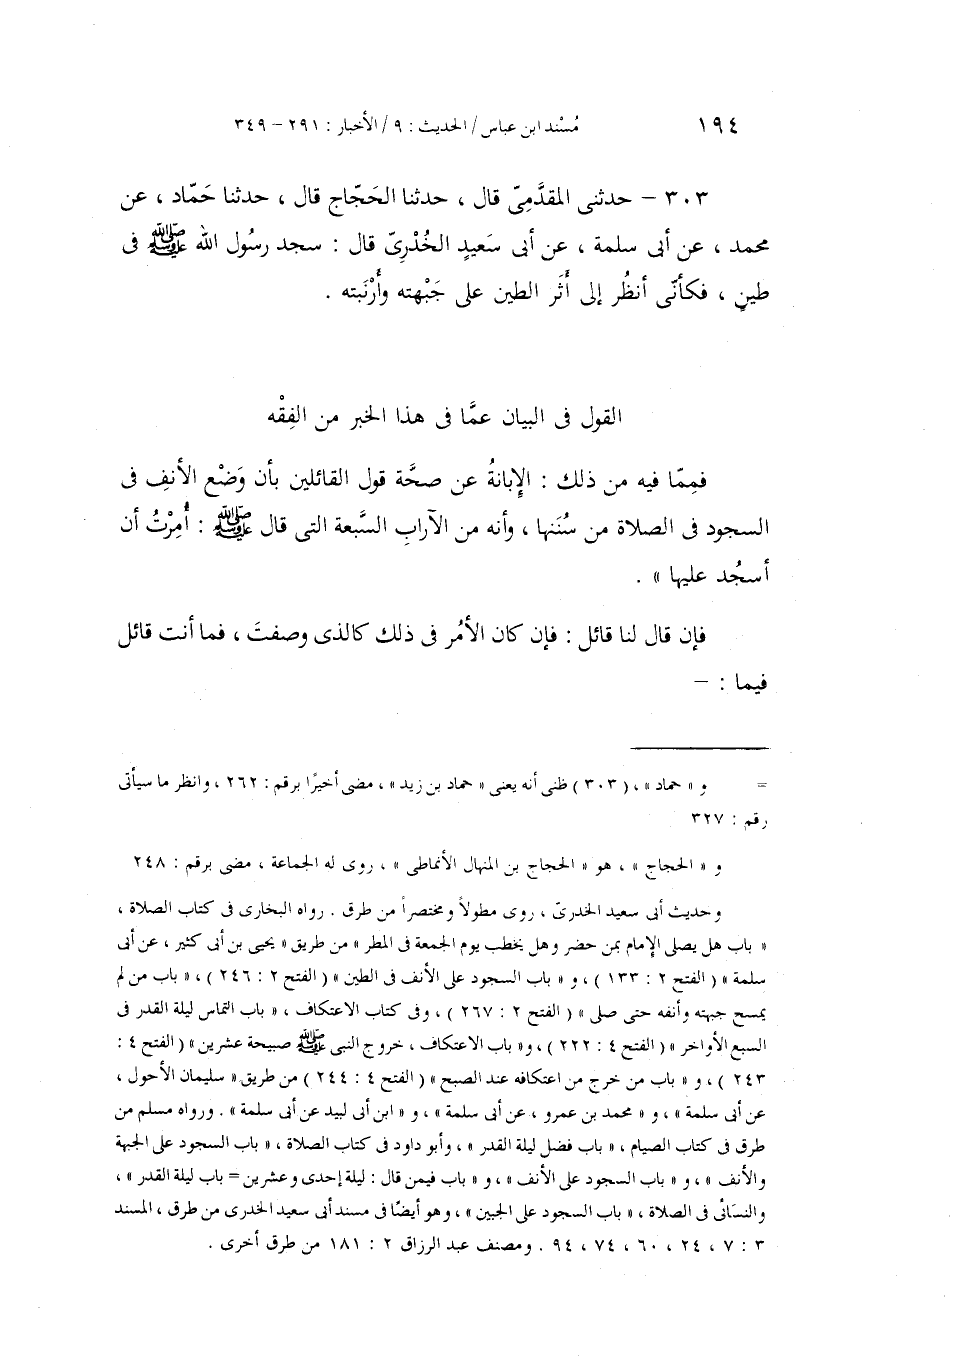 ١٩٤ مُسْند ابن عباس / الحديث : ٩ / الأخبار : ٢٩١ – ٣٤٩
٣٠٣ – حدثنى المقدَّمِىّ قال ، حدثنا الحَجّاج قال ، حدثنا حَمّاد ، عن
محمد ، عن أبى سلمة ، عن أبى سَعيدٍ الخُدْرِىّ قال : سجد رسُول الله ﷺ فى
طينٍ ، فكأنّى أنظُر إلى أَثَر الطين على جَبْهته وأَرْنَبته .
القول فى البيان عمَّا فى هذا الخبر من الفِقْه
فمِمّا فيه من ذلك : الإبانةُ عن صحَّة قول القائلين بأن وَضْع الأنفِ فى
السجود فى الصلاة من سُنَنها ، وأنه من الآرابِ السَّبعة التى قال ﷺ : أُمِرْتُ أن
أسجُد عليها » .
فإن قال لنا قائل : فإن كان الأمُر فى ذلك كالذى وصفتَ ، فما أنت قائل
فيما : –
= و « حماد » ، ( ٣٠٣ ) ظنى أنه يعنى « حماد بن زيد » ، مضى أخيرًا برقم : ٢٦٢ ، وانظر ما سيأتى
رقم : ٣٢٧
و « الحجاج » ، هو « الحجاج بن المنهال الأنماطى » ، روى له الجماعة ، مضى برقم : ٢٤٨
وحديث أبى سعيد الخدرىّ ، روى مطولاً ومختصراً من طرق . رواه البخارى فى كتاب الصلاة ،
« باب هل يصلى الإمام بمن حضر وهل يخطب يوم الجمعة فى المطر » من طريق « يحيى بن أبى كثير ، عن أبى
سلمة » ( الفتح ٢ : ١٣٣ ) ، و « باب السجود على الأنف فى الطين » ( الفتح ٢ : ٢٤٦ ) ، « باب من لم
يمسح جبهته وأنفه حتى صلى » ( الفتح ٢ : ٢٦٧ ) ، وفى كتاب الاعتكاف ، « باب التماس ليلة القدر فى
السبع الأواخر » ( الفتح ٤ : ٢٢٢ ) ، و« باب الاعتكاف ، خروج النبى ﷺ صبيحة عشرين » ( الفتح ٤ :
٢٤٣ ) ، و « باب من خرج من اعتكافه عند الصبح » ( الفتح ٤ : ٢٤٤ ) من طريق « سليمان الأحول ،
عن أبى سلمة » ، و « محمد بن عمرو ، عن أبى سلمة » ، و « ابن أبى لبيد عن أبى سلمة » . ورواه مسلم من
طرق فى كتاب الصيام ، « باب فضل ليلة القدر » ، وأبو داود فى كتاب الصلاة ، « باب السجود على الجبهة
والأنف » ، و « باب السجود على الأنف » ، و « باب فيمن قال : ليلة إحدى وعشرين = باب ليلة القدر » ،
والنسائى فى الصلاة ، « باب السجود على الجبين » ، وهو أيضًا فى مسند أبى سعيد الخدرى من طرق ، المسند
٣ : ٧ ، ٢٤ ، ٦٠ ، ٧٤ ، ٩٤ . ومصنف عبد الرزاق ٢ : ١٨١ من طرق أخرى .